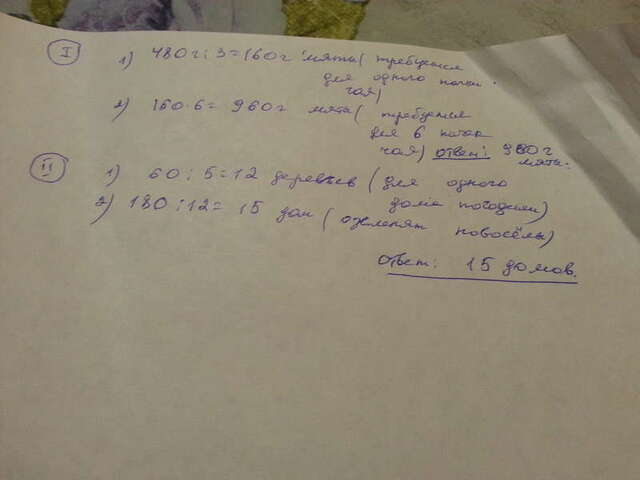 I
1) 480г : 3 = 160г мята ( требуется
для одного пачки
чая)
2) 160 · 6 = 960г мята ( требуется
для 6 пачек
чая) ответ: 960г
мята.
II
1) 60 : 5 = 12 деревьев ( для одного
дома посадили)
2) 180 : 12 = 15 дом ( озеленят новосёлы)
ответ: 15 домов.